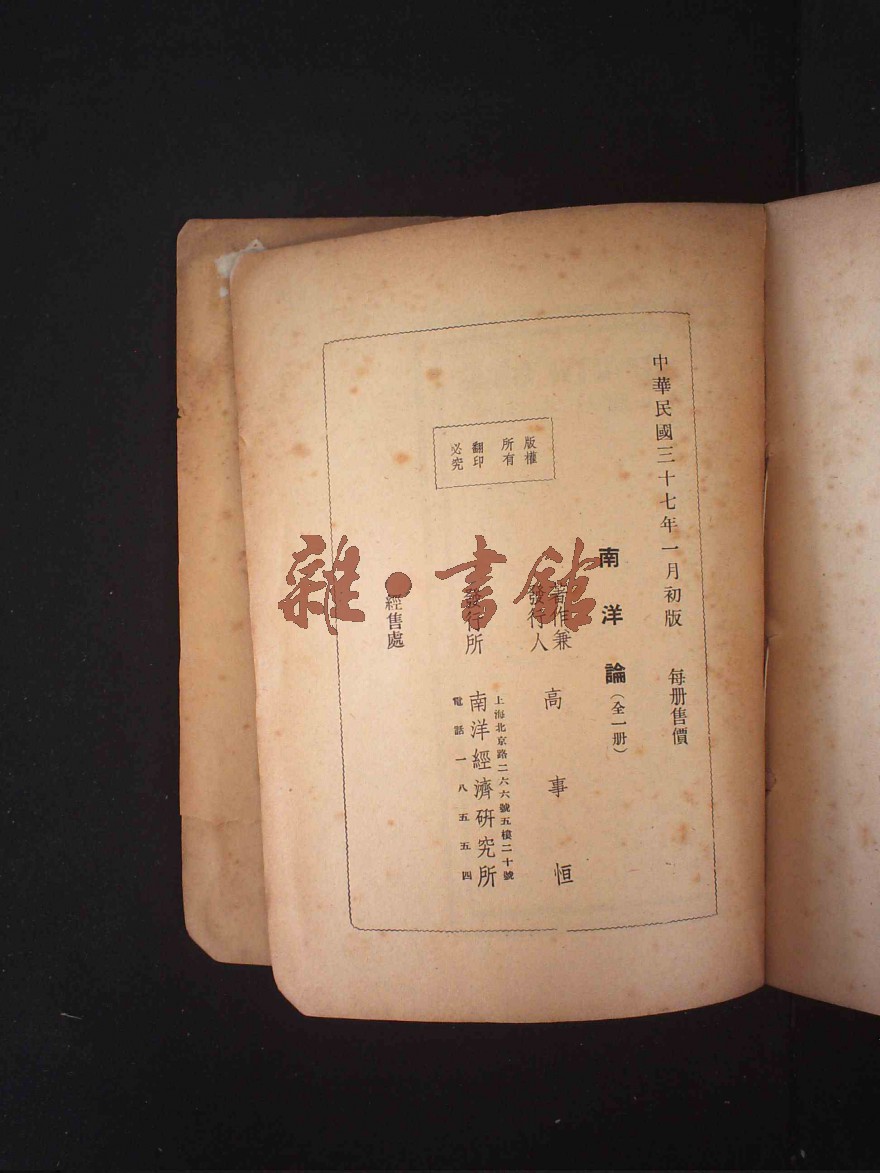 中華民國三十七年一月初版
每册售價
南洋論(全一册)
著作兼
發行人
高事恒
版權
所有
翻印
必究
發行所
上海北京路二六六號五樓二十號
南洋經濟研究所
電話一八五五四
經售處
雜·書館